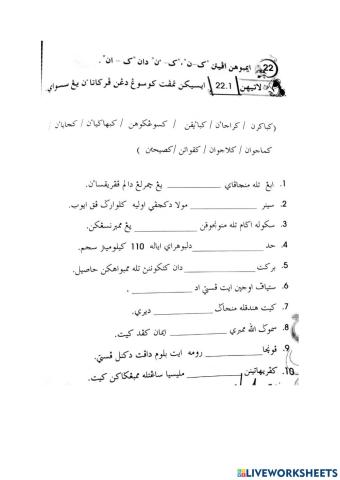 22 ايمبوهن اڤيتن "ک-ن"، "ک-ءن" دان "ک - ان".
لاتيهن 22.1 ايسيکن تمڤت کوسوڠ دڠن ڤرکاتاءن يڠ سسواي
(کباکرن / کراجاءن / کباءيقن / کسوڠڬوهن / کبهاڬياءن /
کماجوان / کلاجوان / کقواتن /کصيحتن )
1. ابڠ تله منچاڤاي يڠ چمرلڠ دالم ڤڤريقساءن.
2. سينر مولا دکچڤي اوليه کلوارڬ ڤق ايوب.
3. سکوله اڬام تله منونجوقن يڠ ممبرنسڠکن.
4. حد دلبوهراي اياله 110 کيلوميتر سجم.
5. برکت دان کتکونن تله ممبواهکن حاصيل.
6. ستياڤ اوجين ايت ڤستي اد .
7. کيت هندقله منجاڬ ديري.
8. سموڬ الله ممبري ايمان کڤد کيت.
9. رومه ايت بلوم داڤت دکنل ڤستي.
10. مليسيا ساڠتله ممبڠڬاکن کيت.
LIVEWORKSHEETS